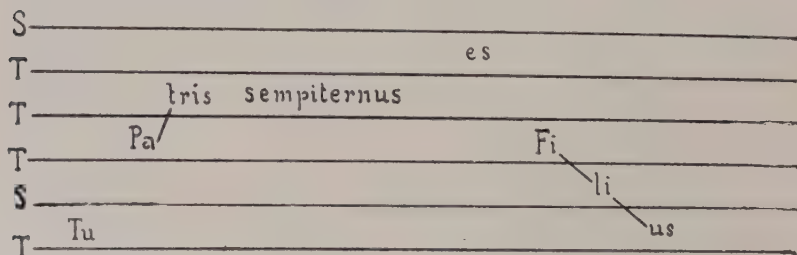 S
es
T
tris sempiternus
T
Pa Fi
T
li
S
Tu us
T